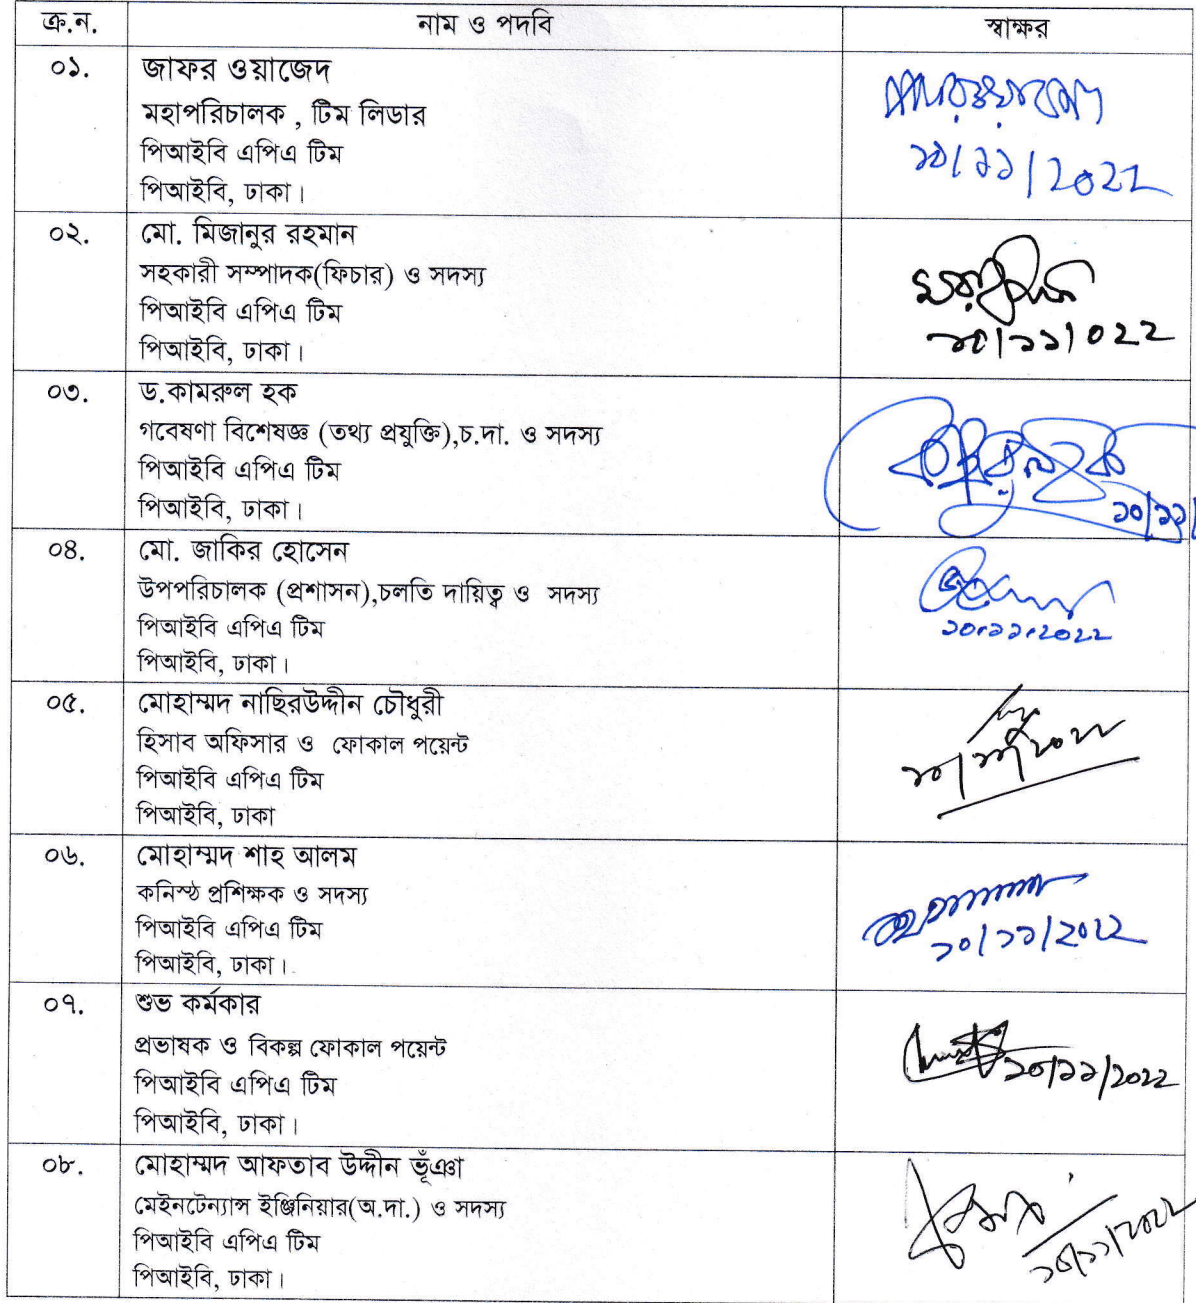 ক্র.ন. নাম ও পদবি স্বাক্ষর
০১. জাফর ওয়াজেদ
মহাপরিচালক , টিম লিডার
পিআইবি এপিএ টিম
পিআইবি, ঢাকা।
জাফর ওয়াজেদ
১০/১১/2022
০২. মো. মিজানুর রহমান
সহকারী সম্পাদক(ফিচার) ও সদস্য
পিআইবি এপিএ টিম
পিআইবি, ঢাকা।
১০/১১/০22
০৩. ড.কামরুল হক
গবেষণা বিশেষজ্ঞ (তথ্য প্রযুক্তি),চ.দা. ও সদস্য
পিআইবি এপিএ টিম
পিআইবি, ঢাকা।
কামরুল হক
১০/১১/
০৪. মো. জাকির হোসেন
উপপরিচালক (প্রশাসন),চলতি দায়িত্ব ও সদস্য
পিআইবি এপিএ টিম
পিআইবি, ঢাকা।
১০.১১.2022
০৫. মোহাম্মদ নাছিরউদ্দীন চৌধুরী
হিসাব অফিসার ও ফোকাল পয়েন্ট
পিআইবি এপিএ টিম
পিআইবি, ঢাকা
১০/১১/2022
০৬. মোহাম্মদ শাহ আলম
কনিস্ঠ প্রশিক্ষক ও সদস্য
পিআইবি এপিএ টিম
পিআইবি, ঢাকা।
১০/১১/2022
০৭. শুভ কর্মকার
প্রভাষক ও বিকল্প ফোকাল পয়েন্ট
পিআইবি এপিএ টিম
পিআইবি, ঢাকা।
১০/১১/2022
০৮. মোহাম্মদ আফতাব উদ্দীন ভূঁঞা
মেইনটেন্যান্স ইঞ্জিনিয়ার(অ.দা.) ও সদস্য
পিআইবি এপিএ টিম
পিআইবি, ঢাকা।
১০/১১/2022